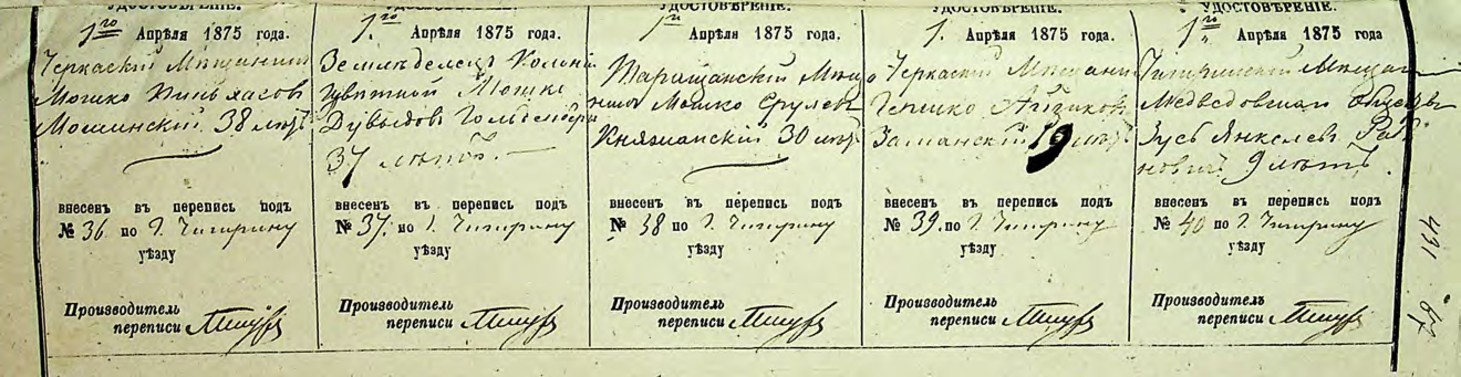 УДОСТОВѢРЕНІЕ.
1го Апрѣля 1875 года.
Черкаскій Мѣщанинъ
Мошко
Мошинскій 38 лѣтъ
внесенъ въ перепись подъ
№ 36 по г. Чигирину
уѣзду
Производитель
переписи
УДОСТОВѢРЕНІЕ.
1. Апрѣля 1875 года.
Земледѣлецъ Колоніи
Мошко
Дувыдовъ Гольденберг
37 лѣтъ
внесенъ въ перепись подъ
№ 37. по г. Чигирину
уѣзду
Производитель
переписи
УДОСТОВѢРЕНІЕ.
1го Апрѣля 1875 года.
Таращанскій Мѣща
нинъ Мошко Срулев
Княжанскій 30 лѣтъ
внесенъ въ перепись подъ
№ 38 по г. Чигирину
уѣзду
Производитель
переписи
УДОСТОВѢРЕНІЕ.
1. Апрѣля 1875 года.
Черкаскій Мѣщани
Гершко Айзиков
19 лѣт.
внесенъ въ перепись подъ
№ 39. по г. Чигирину
уѣзду
Производитель
переписи
УДОСТОВѢРЕНІЕ.
1го Апрѣля 1875 года
Чигиринскій Мѣщан
Медведовскаго Общества
Зусь Янкелев Раб
новичъ 9 лѣтъ.
внесенъ въ перепись подъ
№ 40 по г. Чигирину
уѣзду
Производитель
переписи
431